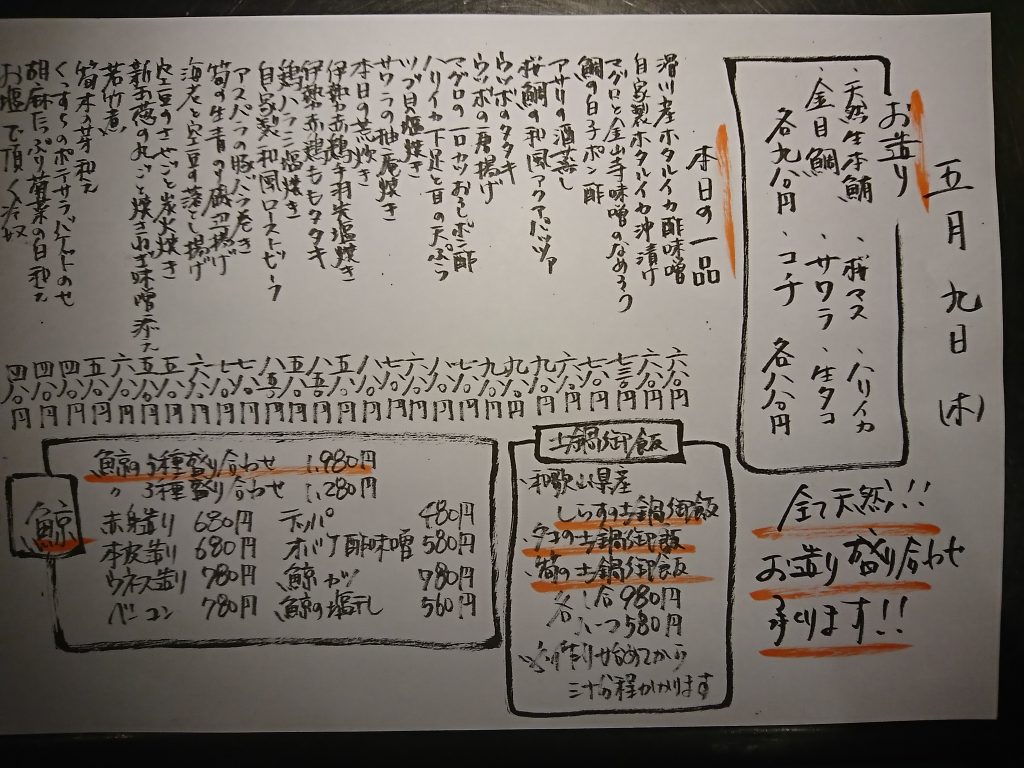 五月九日(木)
お造り
・天然生本鮪
・金目鯛
各九八〇円
・桜マス
・サワラ
・コチ
・ハリイカ
・生タコ
各八八〇円
全て天然!!
お造り盛り合わせ
承ります!!
本日の一品
滑川産ホタルイカ酢味噌 六八〇円
自家製ホタルイカ沖漬け 六八〇円
マグロと金山寺味噌のなめろう 七三〇円
鯛の白子ポン酢 七八〇円
アサリの酒蒸し 六八〇円
桜鯛の和風アクアパッツァ 九八〇円
ウツボのタタキ 九八〇円
ウツボの唐揚げ 九八〇円
マグロの一口カツおろしポン酢 七八〇円
ハリイカ下足と旨の天ぷら 八八〇円
ツブ貝塩焼き 六八〇円
サワラの柚庵焼き 七八〇円
本日の荒炊き 八八〇円
伊勢赤鶏手羽先塩焼き 五八〇円
伊勢赤鶏ももタタキ 八八〇円
鶏ハラミ塩焼き 五八〇円
自家製和風ローストビーフ 八八〇円
アスパラの豚バラ巻き 七八〇円
筍の生青のり磯辺揚げ 七八〇円
海老と空豆の落とし揚げ 六八〇円
空豆のさやごと炭火焼き 五八〇円
新玉葱の丸ごと焼きねぎ味噌添え 五八〇円
若竹煮 六八〇円
筍木の芽和え 五八〇円
くんずらのポテサラバゲットのせ 四八〇円
胡麻たっぷり菊菜の白和え 四八〇円
お塩で頂く冷奴 四八〇円
土鍋御飯
・和歌山県産
しらすの土鍋御飯
・タコの土鍋御飯
・筍の土鍋御飯
各 一合980円
ハーフ580円
※作り始めてから
三十分程かかります
鯨
鯨の5種盛り合わせ 1,980円
〃 3種盛り合わせ 1,280円
赤身造り 680円
本皮造り 680円
ウネス造り 780円
ベーコン 780円
テッパ 480円
オバケ酢味噌 580円
鯨カツ 780円
鯨の塩干し 560円